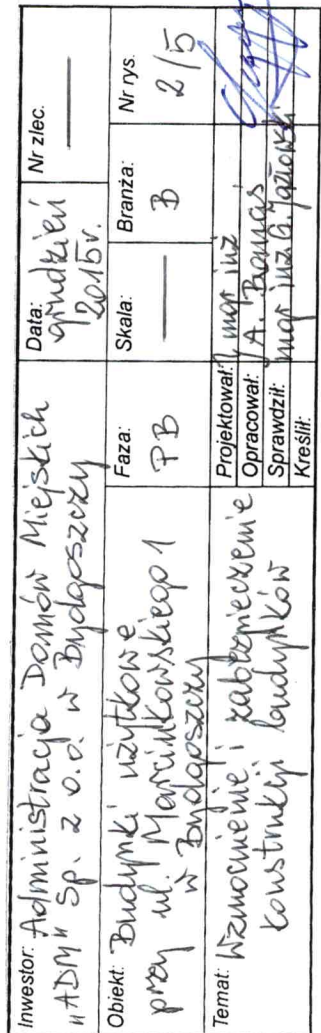 Inwestor: Administracja Domów Miejskich
"ADM" Sp. z o.o. w Bydgoszczy
Data:
grudzień
2015r.
Nr zlec.
—
Obiekt: Budynki użytkowe
przy ul. Marcinkowskiego 1
w Bydgoszczy
Faza:
PB
Skala:
—
Branża:
B
Nr rys.
2/5
Temat: Wzmocnienie i zabezpieczenie
konstrukcji budynków
Projektował: mgr inż.
Opracował: A. Banas
Sprawdził: mgr inż. G.
Kreślił: